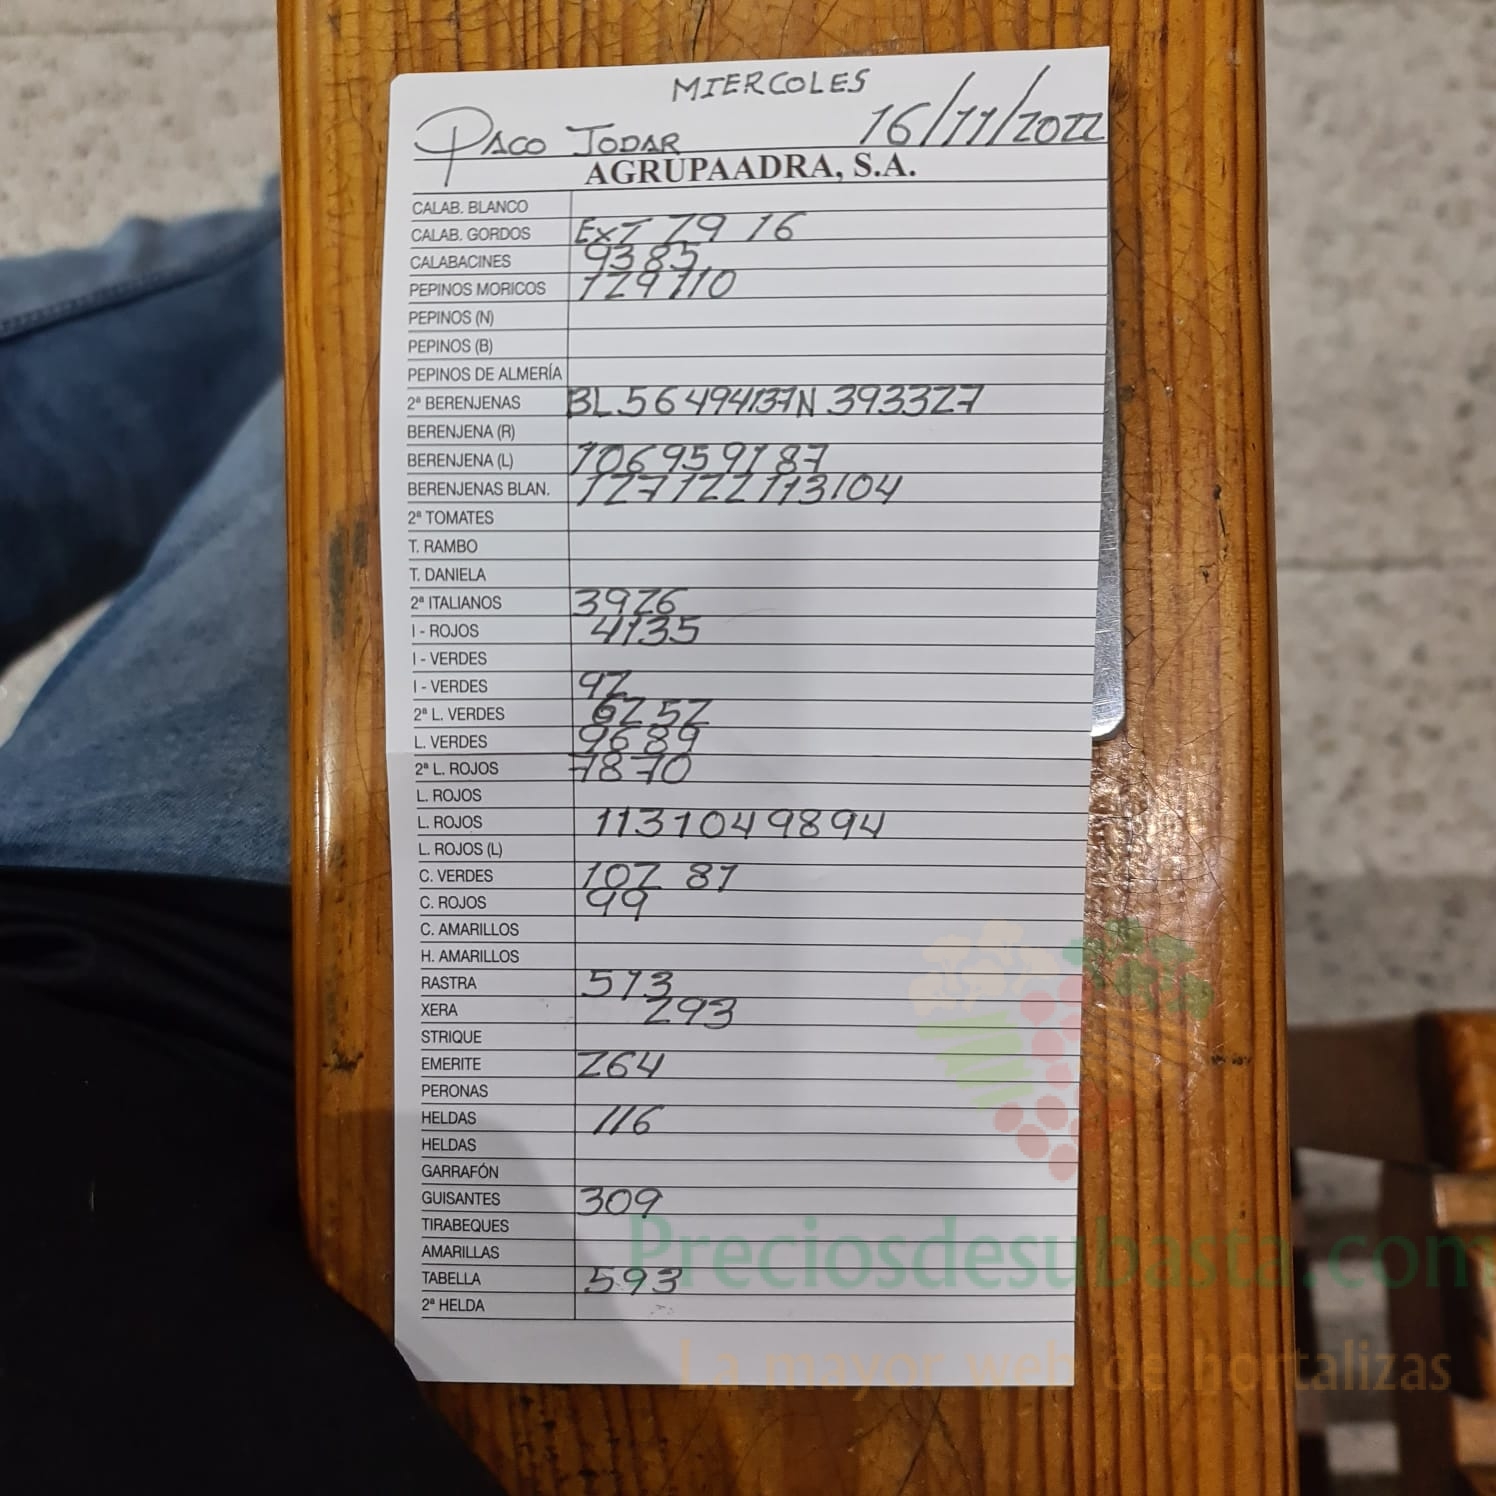 MIERCOLES
PACO JODAR 16/11/2022
AGRUPAADRA, S.A.
CALAB. BLANCO
CALAB. GORDOS EXT 79 16
CALABACINES 9385
PEPINOS MORICOS 129110
PEPINOS (N)
PEPINOS (B)
PEPINOS DE ALMERÍA
2ª BERENJENAS BL.56494137N 393327
BERENJENA (R)
BERENJENA (L) 106959187
BERENJENAS BLAN. 127122113104
2ª TOMATES
T. RAMBO
T. DANIELA
2ª ITALIANOS 3926
I - ROJOS 4135
I - VERDES
I - VERDES 92
2ª L. VERDES 6252
L. VERDES 9689
2ª L. ROJOS 7870
L. ROJOS
L. ROJOS 1131049894
L. ROJOS (L)
C. VERDES 102 81
C. ROJOS 99
C. AMARILLOS
H. AMARILLOS
RASTRA 513
XERA 293
STRIQUE
EMERITE 264
PERONAS
HELDAS 116
HELDAS
GARRAFÓN
GUISANTES 309
TIRABEQUES
AMARILLAS
TABELLA 593
2ª HELDA
Preciosdesubasta.com
La mayor web de hortalizas